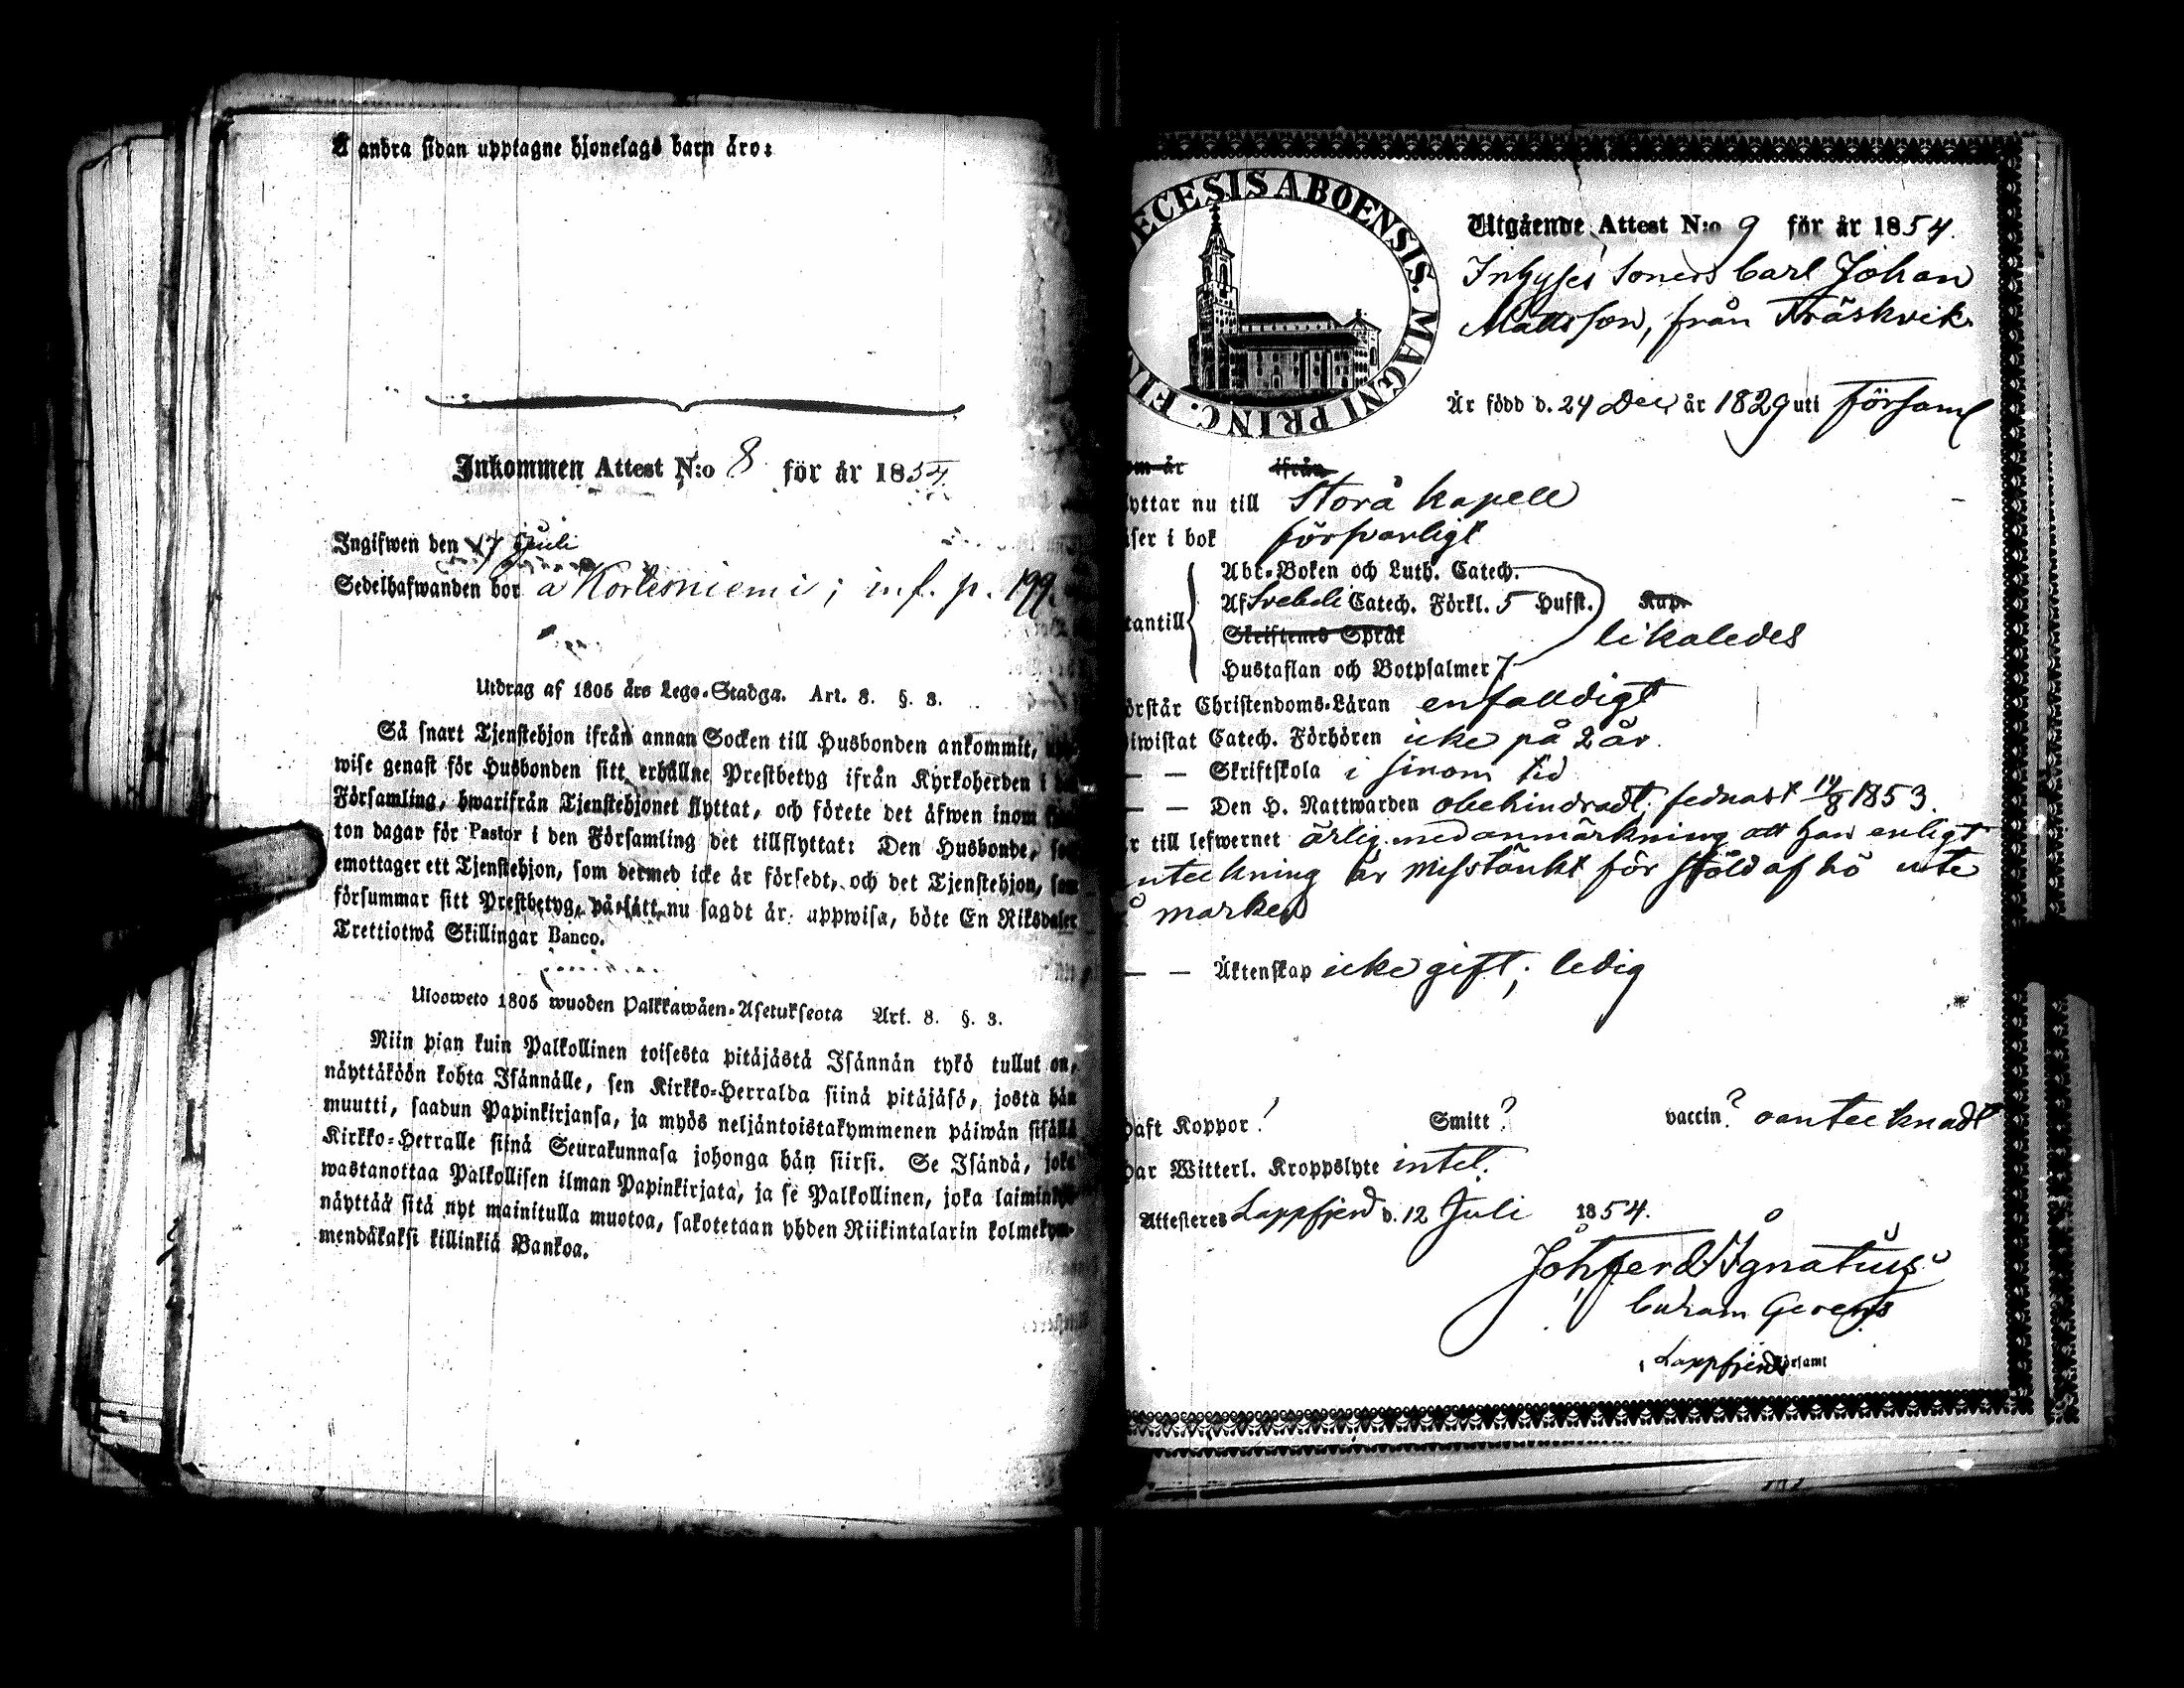 Å andra sidan upptagne hjonelags barn äro:
Inkommen Attest N:o 8 för år 1854.
Ingifwen den 17 Juli
Sedelhafwanden bor å Kortesniemi; inf. p. 199.
Utdrag af 1805 års Lego-Stadga. Art. 8. §. 3.
Så snart Tjenstehjon ifrån annan Socken till Husbonden ankommit,
wise genast för Husbonden sitt erhållne Prestbetyg ifrån Kyrkoherden i
Församling, hwarifrån Tjenstehjonet flyttat, och förete det äfwen inom
ton dagar för Pastor i den Församling det tillflyttat: Den Husbonde,
emottager ett Tjenstehjon, som dermed icke är försedt, och det Tjenstehjon, som
försummar sitt Prestbetyg, på sätt nu sagdt är uppwisa, böte En Riksdaler
Trettiotwå Skillingar Banco.
Ulosweto 1805 wuoden Palkkawäen-Asetuksesta Art. 8. §. 3.
Niin pian kuin Palkollinen toisesta pitäjästä Isännän tykö tullut on,
näyttäköön kohta Isännälle, sen Kirkko-Herralda siinä pitäjäsä, josta hän
muutti, saadun Papinkirjansa, ja myös neljäntoistakymmenen päiwän sisällä
Kirkko-Herralle siinä Seurakunnasa johonga hän siirsi. Se Isändä, joka
wastanottaa Palkollisen ilman Papinkirjata, ja se Palkollinen, joka
näyttää sitä nyt mainitulla muotoa, sakotetaan yhden Riikintalarin kolmekym-
mendäkaksi killinkiä Bankoa.
ECESIS ABOENSIS. MAGNI PRINC. FIN
Utgående Attest N:o 9 för år 1854.
Inhyses sonen Carl Johan
Mattsson, från Träskvik
Är född d. 24 Dec år 1829 uti församl
om är ifrån
yttar nu till Storå kapell
äser i bok försvarligt
Abc-Boken och Luth. Catech.
Af Svebeli Catech. Förkl. 5 Hufst. Kap.
tantill
Skriftenes Språk likaledes
Hustaflan och Botpsalmer 7
örstår Christendoms-Läran enfaldigt
iwistat Catech. Förhören icke på 2 år.
— — Skriftskola i sinom tid
— — Den H. Nattwarden obehindradt, sednast 14/8 1853.
r till lefwernet ärlig med anmärkning att han enligt
nteckning är misstänkt för stöld af hö ute
å marken
— — Äktenskap icke gift; ledig
haft Koppor! Smitt? vaccin? oantecknadt
har Witterl. Kroppslyte intet.
Attesteres Lappfjerd d. 12 Juli 1854.
Joh Ferd Ignatius
Curam Gerens
i Lappfjerds Församl